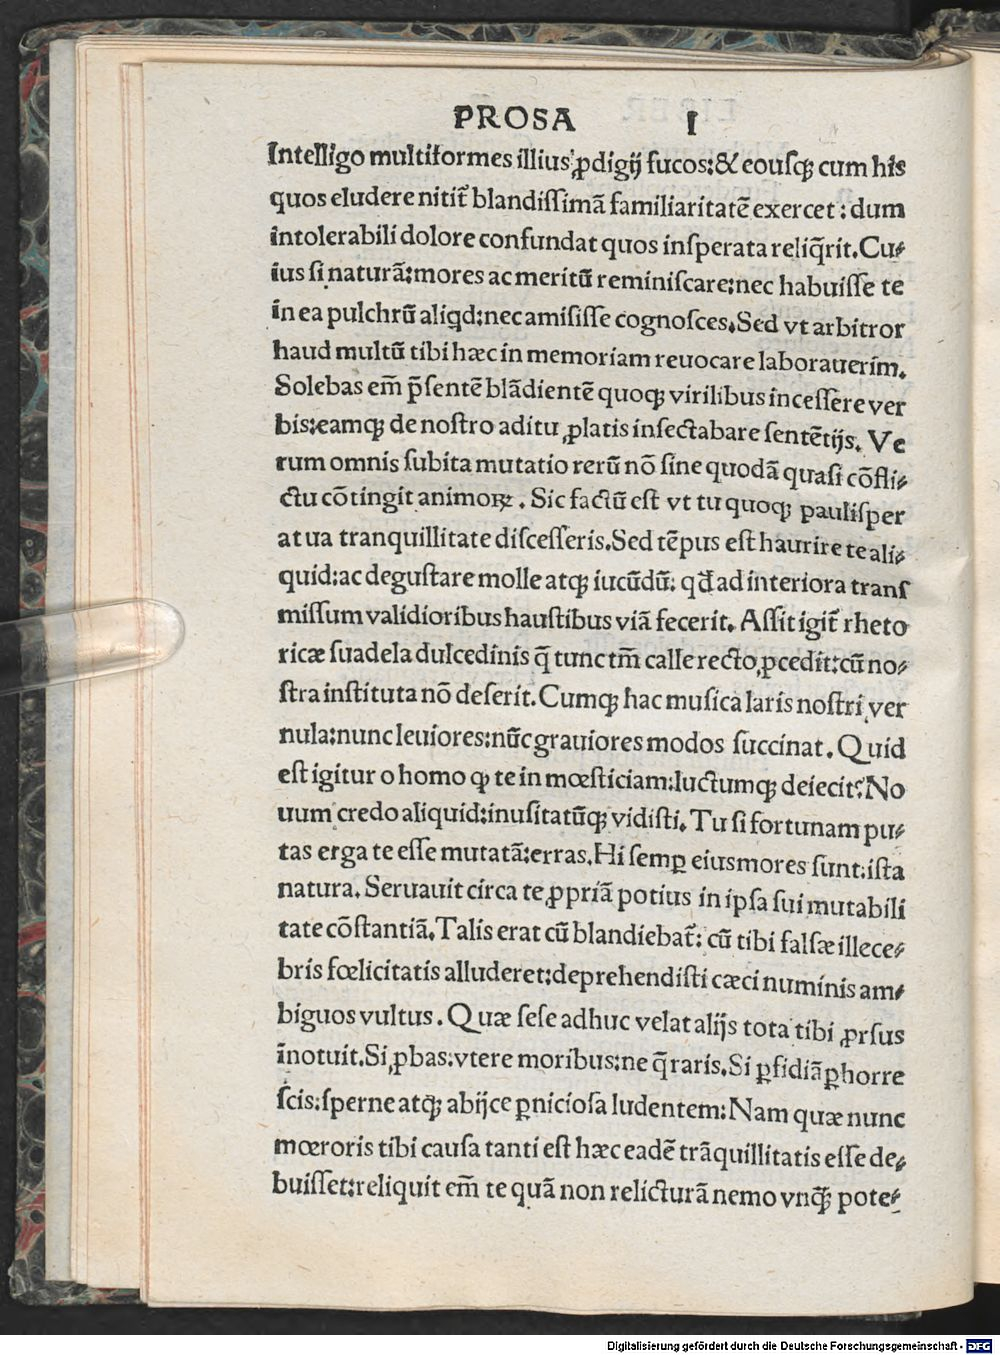 PROSA I
Intelligo multiformes illius ꝓdigij fucos:&eousqꝫ cum his
quos eludere nitit᷑ blandissimā familiaritatē exercet: dum
intolerabili dolore confundat quos insperata reliq̄rit. Cu⸗
ius si naturā:mores ac meritū reminiscare:nec habuisse te
in ea pulchrū aliꝗd:nec amisisse cognosces. Sed vt arbitror
haud multū tibi hæc in memoriam reuocare laborauerim.
Solebas em̄ p̄sentē blādientē quoqꝫ virilibus incessere ver
bis:eamqꝫ de nostro aditu ꝓlatis insectabare sentētijs. Ve
rum omnis subita mutatio rerū nō sine quodā quasi cōfli⸗
ctu cōtingit animoꝝ. Sic factū est vt tu quoqꝫ paulisper
a tua tranquillitate discesseris. Sed tēpus est haurire te ali⸗
quid:ac degustare molle atqꝫ iucūdū: qđ ad interiora trans
missum validioribus haustibus viā fecerit. Assit igit᷑ rheto
ricæ suadela dulcedinis q̄ tunc tm̄ calle recto ꝓcedit:cū no⸗
stra instituta nō deserit. Cumqꝫ hac musica laris nostri ver
nula:nunc leuiores:nūc grauiores modos succinat. Quid
est igitur o homo ꝙ te in mœsticiam:luctumqꝫ deiecit? No
uum credo aliquid:inusitatūqꝫ vidisti. Tu si fortunam pu⸗
tas erga te esse mutatā:erras. Hi semꝑ eius mores sunt:ista
natura. Seruauit circa te ꝓpriā potius in ipsa sui mutabili
tate cōstantiā. Talis erat cū blandiebat᷑: cū tibi falsæ illece⸗
bris fœlicitatis alluderet:deprehendisti cæci numinis am⸗
biguos vultus. Quæ sese adhuc velat alijs tota tibi ꝓrsus
innotuit. Si ꝓbas:vtere moribus:ne q̄raris. Si ꝑfidiā ꝑhorre
scis:sperne atqꝫ abijce ꝑniciosa ludentem:Nam quæ nunc
mœroris tibi causa tanti est hæc eadē trāquillitatis esse de⸗
buisset:reliquit em̄ te quā non relicturā nemo vnqꝫ̄ pote⸗
Digitalisierung gefördert durch die Deutsche Forschungsgemeinschaft - DFG